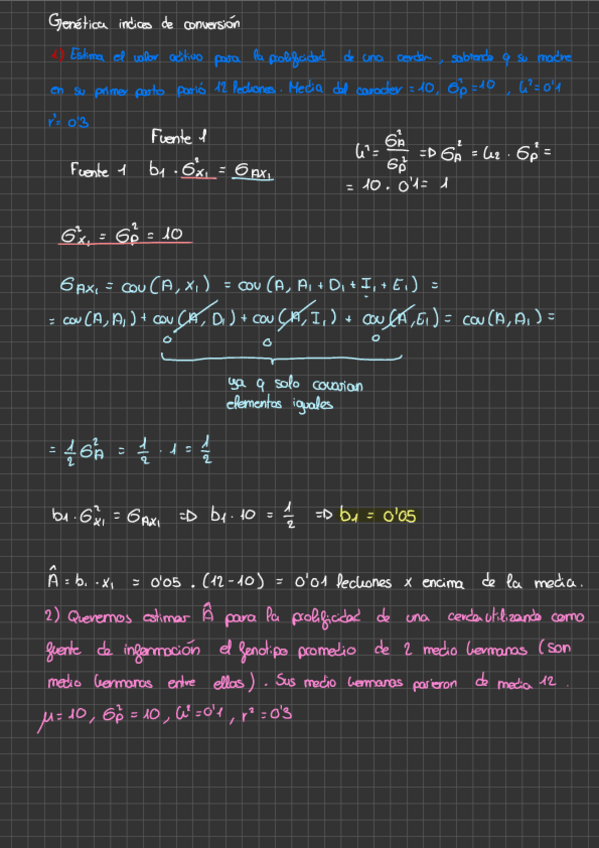 Genética indices de conversión
1) Estima el valor aditivo para la prolificidad de una cerda, sabiendo q su madre
en su primer parto parió 12 lechones. Media del caracter = 10, σ²p = 10, h² = 0'1
r² = 0'3
Fuente 1
Fuente 1 b₁ · σ²x₁ = σAx₁
h² = σ²A / σ²p => σ²A = h₂ · σ²p =
= 10 · 0'1 = 1
σ²x₁ = σ²p = 10
σAx₁ = cov (A, x₁) = cov (A, A₁ + D₁ + I₁ + E₁) =
= cov (A, A₁) + cov (A, D₁) + cov (A, I₁) + cov (A, E₁) = cov (A, A₁) =
0 0 0
ya q solo covarian
elementos iguales
= 1/2 σ²A = 1/2 · 1 = 1/2
b₁ · σ²x₁ = σAx₁ => b₁ · 10 = 1/2 => b₁ = 0'05
Â = b₁ · x₁ = 0'05 · (12-10) = 0'01 lechones x encima de la media.
2) Queremos estimar Â para la prolificidad de una cerda utilizando como
fuente de información el fenotipo promedio de 2 medio hermanas (son
medio hermanas entre ellas). Sus medio hermanas parieron de media 12.
μ = 10, σ²p = 10, h² = 0'1, r² = 0'3